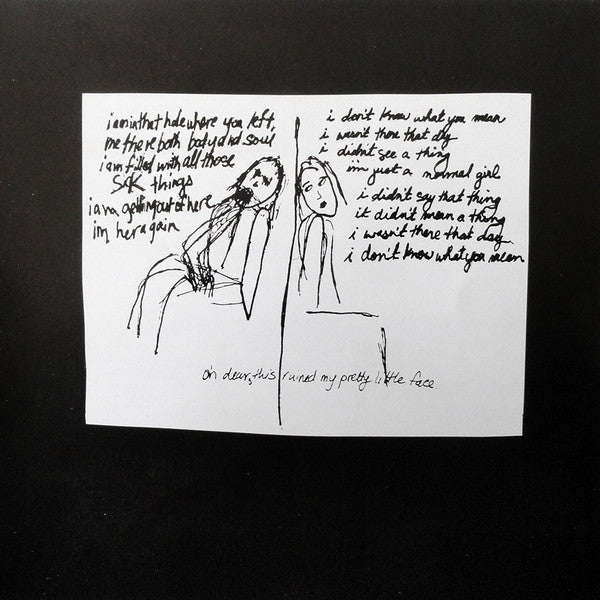 i am in that hole where you left,
me there both body and soul
i am filled with all those
SICK things
i am getting out of here
im her again
i don't know what you mean
i wasn't there that day
i didn't see a thing
i'm just a normal girl
i didn't say that thing
it didn't mean a thing
i wasn't there that day
i don't know what you mean
oh dear, this ruined my pretty little face